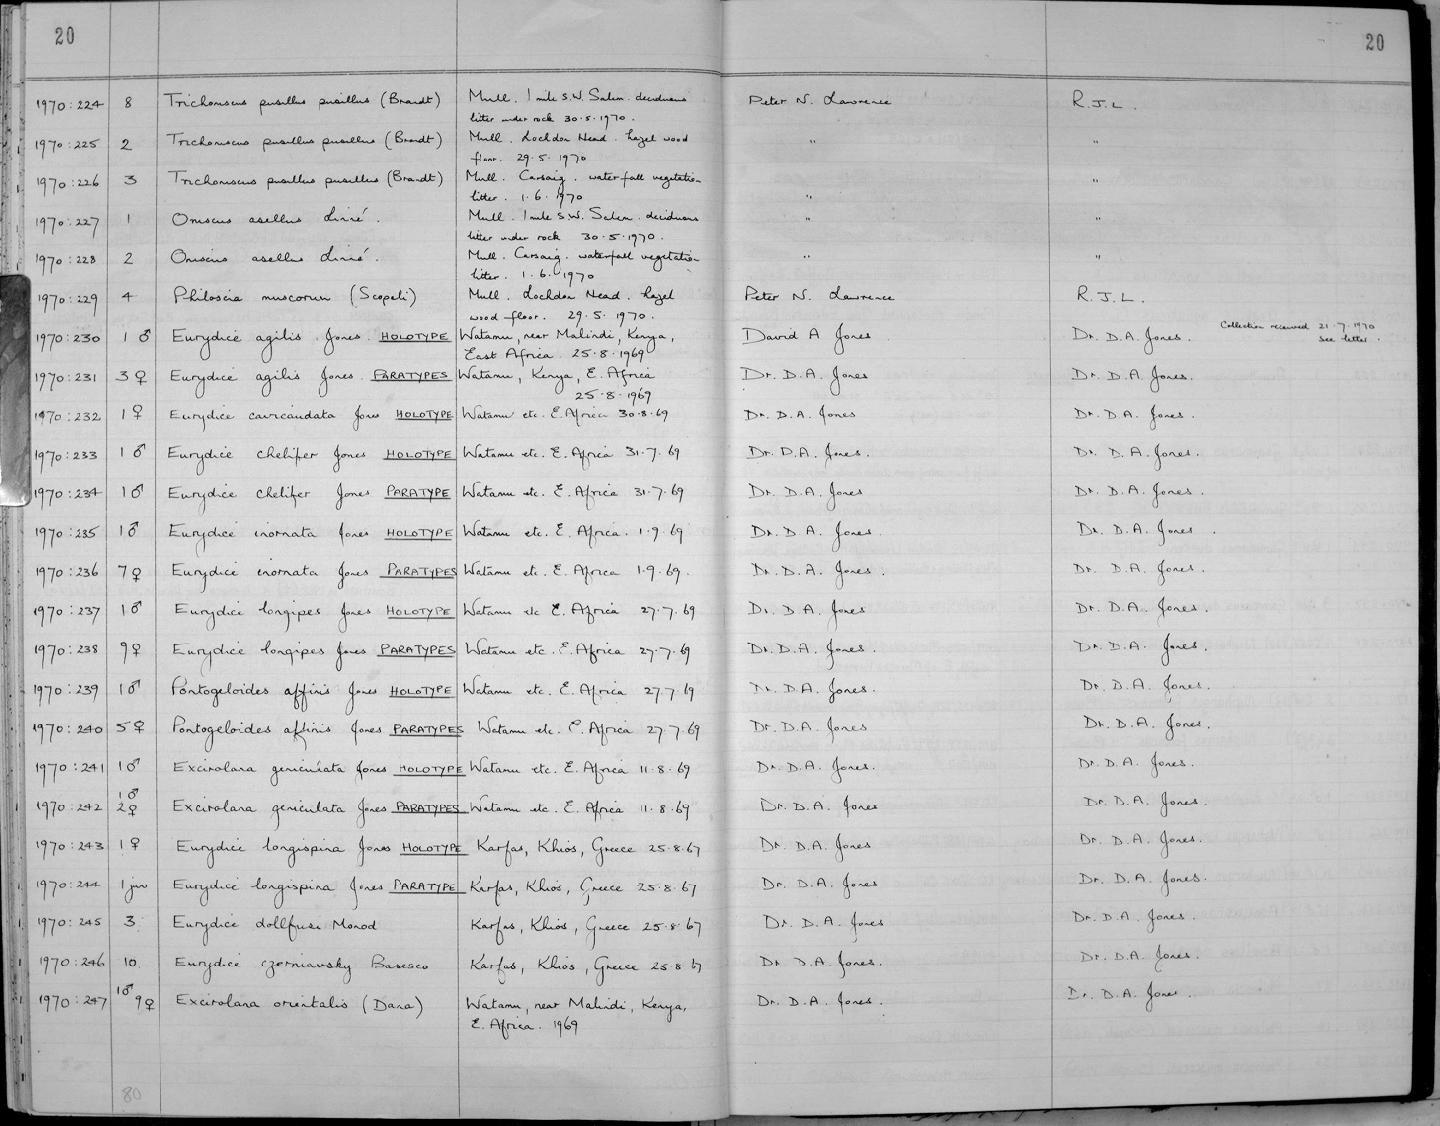 20 20
1970:224 8 Trichoniscus pusillus pusillus (Brandt) Mull. 1 mile S.W. Salen. deciduous Peter N. Lawrence R.J.L.
litter under rock 30.5.1970.
1970:225 2 Trichoniscus pusillus pusillus (Brandt) Mull. Lochdon Head. hazel wood " "
floor. 29.5.1970
1970:226 3 Trichoniscus pusillus pusillus (Brandt) Mull. Carsaig. waterfall vegetation " "
litter. 1.6.1970
1970:227 1 Oniscus asellus Linné. Mull. 1 mile S.W. Salen. deciduous " "
litter under rock 30.5.1970.
1970:228 2 Oniscus asellus Linné. Mull. Carsaig. waterfall vegetation " "
litter. 1.6.1970
1970:229 4 Philoscia muscorum (Scopoli) Mull. Lochdon Head. hazel Peter N. Lawrence R.J.L.
wood floor. 29.5.1970.
1970:230 1 ♂ Eurydice agilis Jones HOLOTYPE Watamu, near Malindi, Kenya, David A Jones Dr. D.A. Jones. Collection received 21.7.1970
East Africa 25.8.1969 see letter.
1970:231 3 ♀ Eurydice agilis Jones. PARATYPES Watamu, Kenya, E. Africa Dr. D.A. Jones Dr. D.A. Jones.
25.8.1969
1970:232 1 ♀ Eurydice cavicaudata Jones HOLOTYPE Watamu etc. E. Africa 30.8.69 Dr. D.A. Jones Dr. D.A. Jones.
1970:233 1 ♂ Eurydice chelifer Jones HOLOTYPE Watamu etc. E. Africa 31.7.69 Dr. D.A. Jones. Dr. D.A. Jones.
1970:234 1 ♂ Eurydice chelifer Jones PARATYPE Watamu etc. E. Africa 31.7.69 Dr. D.A. Jones Dr. D.A. Jones.
1970:235 1 ♂ Eurydice inornata Jones HOLOTYPE Watamu etc. E. Africa. 1.9.69 Dr. D.A. Jones. Dr. D.A. Jones.
1970:236 7 ♀ Eurydice inornata Jones PARATYPES Watamu etc. E. Africa 1.9.69. Dr. D.A. Jones. Dr. D.A. Jones.
1970:237 1 ♂ Eurydice longipes Jones HOLOTYPE Watamu etc E. Africa 27.7.69 Dr. D.A. Jones Dr. D.A. Jones.
1970:238 9 ♀ Eurydice longipes Jones PARATYPES Watamu etc. E. Africa 27.7.69 Dr. D.A. Jones. Dr. D.A. Jones.
1970:239 1 ♂ Pontogeloides affinis Jones HOLOTYPE Watamu etc. E. Africa 27.7.69 Dr. D.A. Jones. Dr. D.A. Jones.
1970:240 5 ♀ Pontogeloides affinis Jones PARATYPES Watamu etc. E. Africa 27.7.69 Dr. D.A. Jones Dr. D.A. Jones.
1970:241 1 ♂ Excirolana geniculata Jones HOLOTYPE Watamu etc. E. Africa 11.8.69 Dr. D.A. Jones. Dr. D.A. Jones.
1 ♂
1970:242 2 ♀ Excirolana geniculata Jones PARATYPES Watamu etc. E. Africa 11.8.69 Dr. D.A. Jones Dr. D.A. Jones.
1970:243 1 ♀ Eurydice longispina Jones HOLOTYPE Karfas, Khios, Greece 25.8.67 Dr. D.A. Jones Dr. D.A. Jones.
1970:244 1 juv Eurydice longispina Jones PARATYPE Karfas, Khios, Greece 25.8.67 Dr. D.A. Jones Dr. D.A. Jones.
1970:245 3 Eurydice dollfusi Monod Karfas, Khios, Greece 25.8.67 Dr. D.A. Jones Dr. D.A. Jones.
1970:246 10 Eurydice czerniavsky Bacesco Karfas, Khios, Greece 25.8.67 Dr. D.A. Jones. Dr. D.A. Jones.
1970:247 1 ♂ 9 ♀ Excirolana orientalis (Dana) Watamu, near Malindi, Kenya, Dr. D.A. Jones. Dr. D.A. Jones.
E. Africa. 1969
80